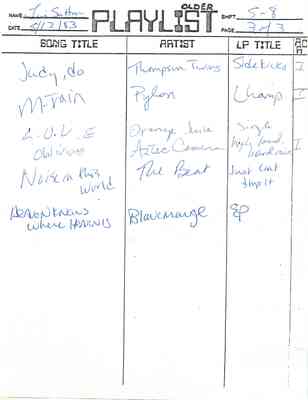 NAME L. Sutton OLDER SHIFT 5-8
PLAYLIST
DATE 4/2/83 PAGE 3 of 3
SONG TITLE ARTIST LP TITLE
Judy, do Thompson Twins Sidekicks I
M-Train Pylon Chomp
L.O.V.E Orange Juice Single
Oblivious Aztec Camera high land, hard rain I
Noise in this World The Beat Just Can't Stop It
HEAVEN KNOWS WHERE HEAVEN IS Blancmange EP